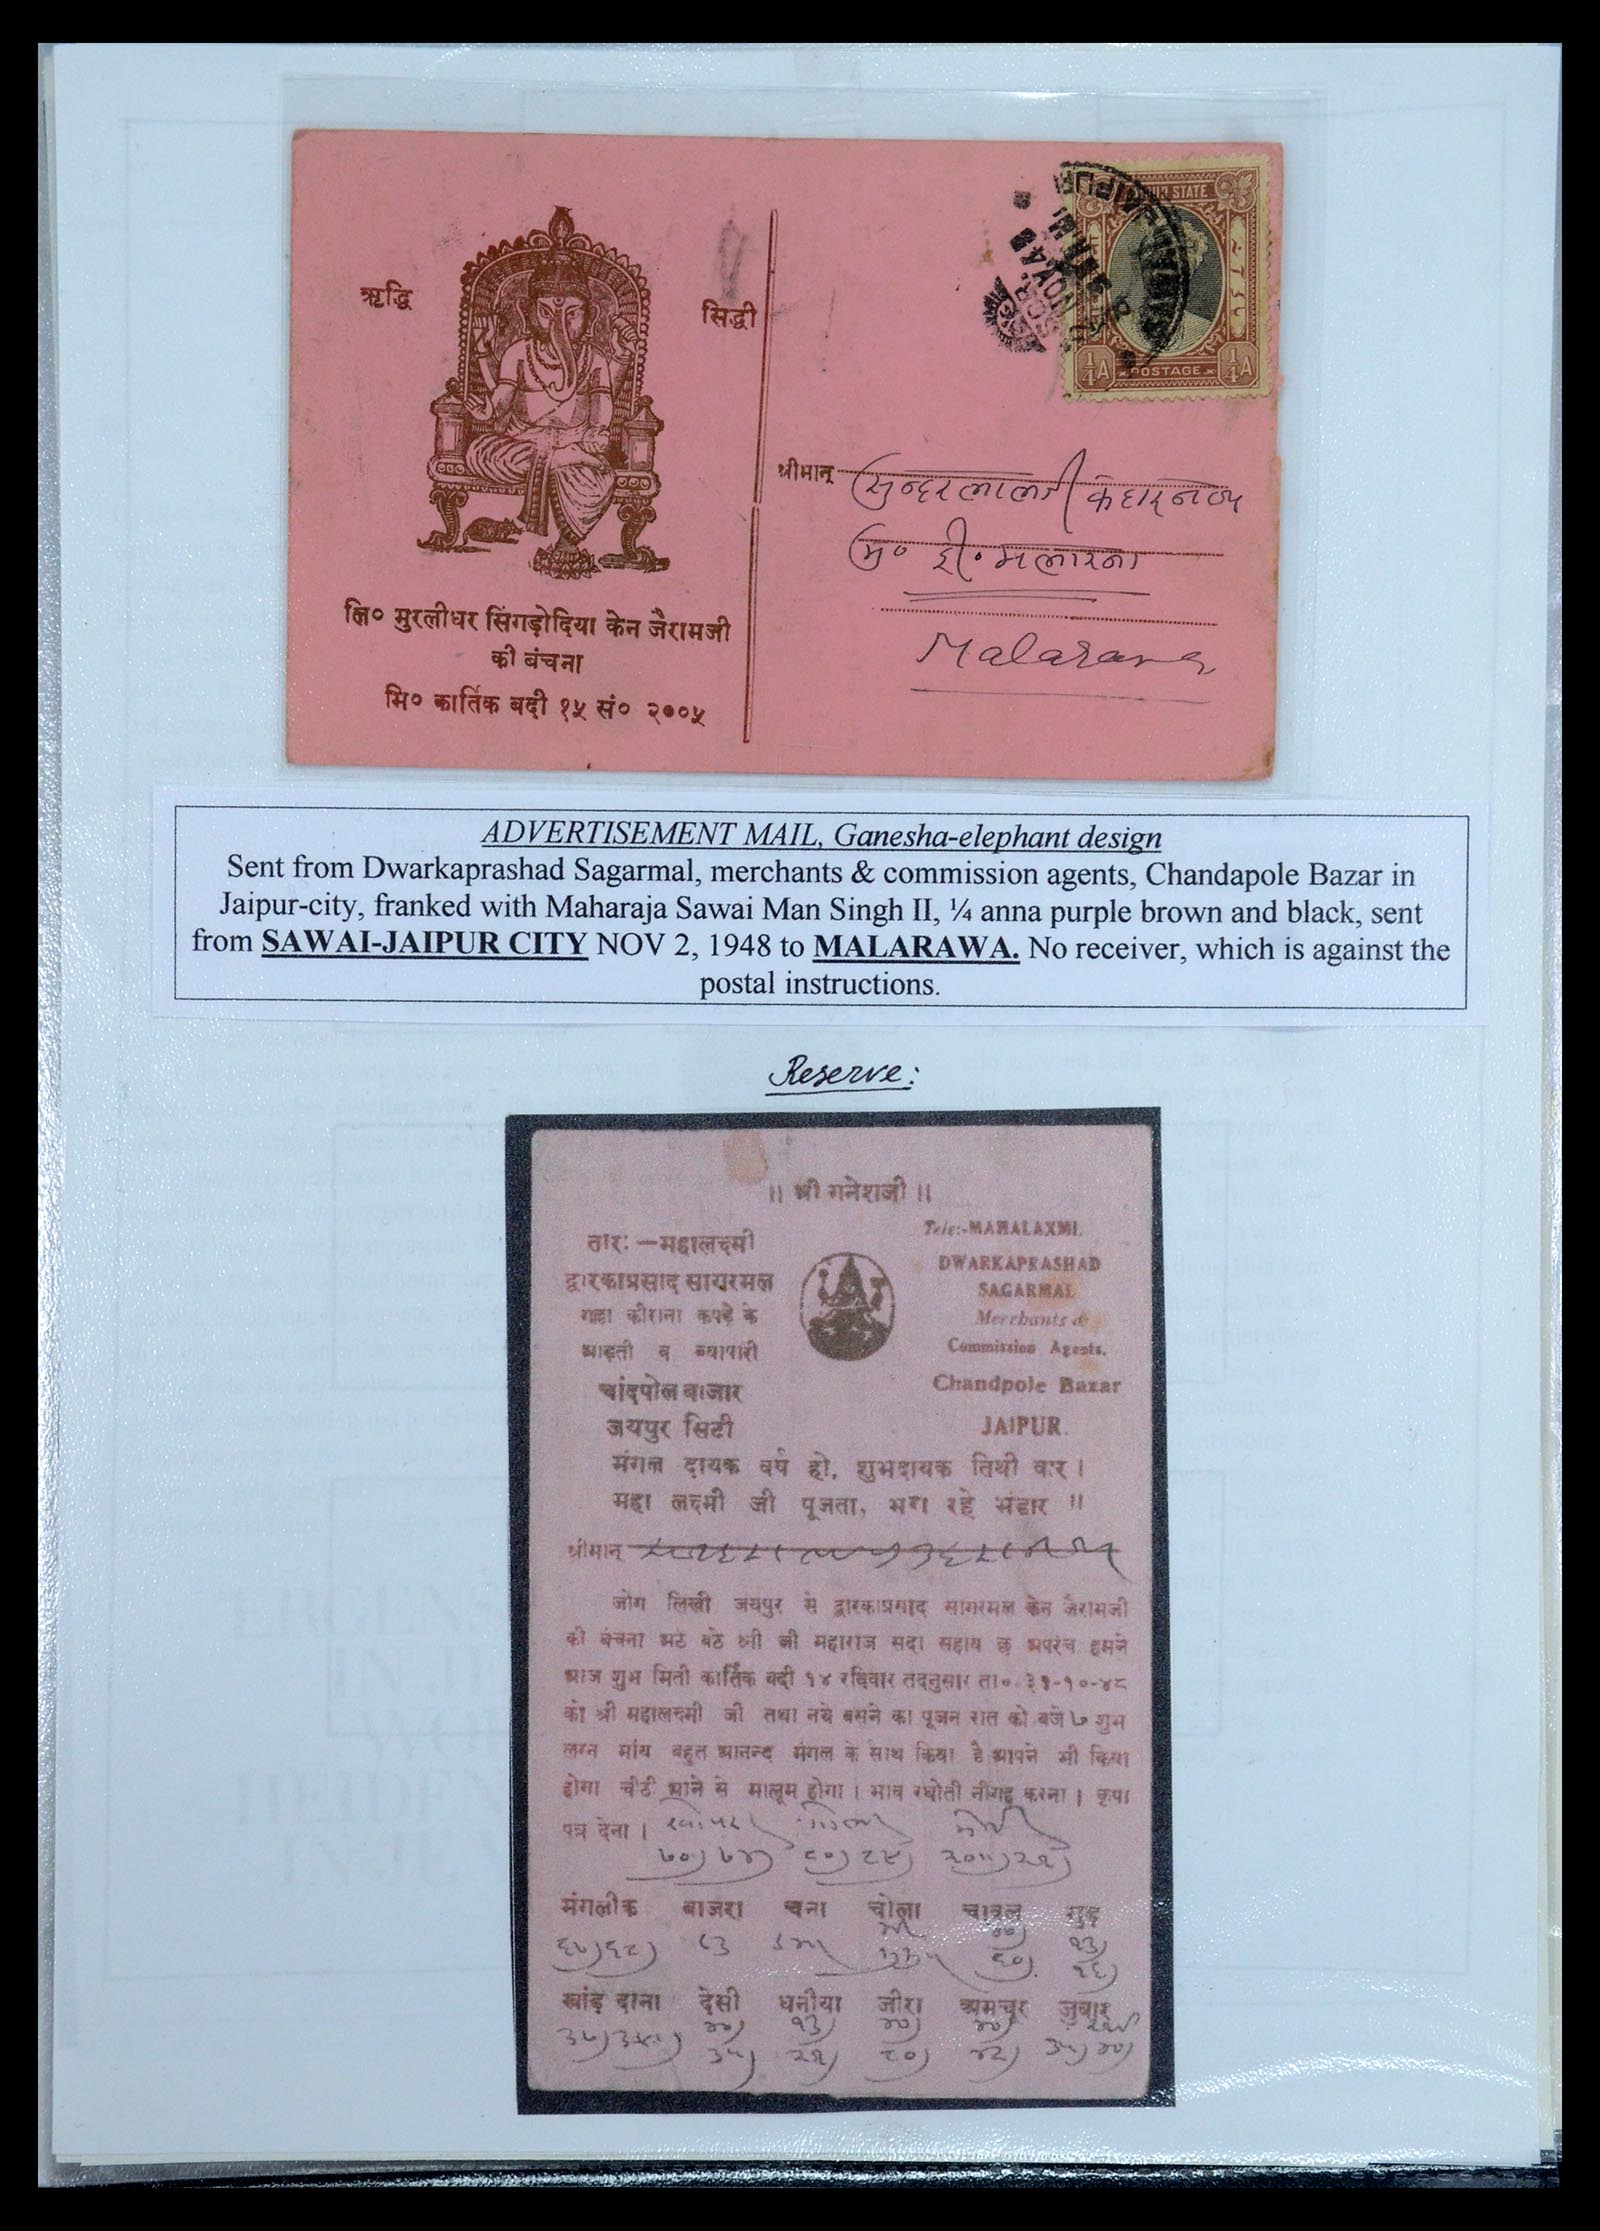 ऋद्धि
सिद्धी
लि० मुरलीधर सिंगड़ोदिया केन जैरामजी
की बंचना
मि० कार्तिक बदी १५ सं० २००५
STATE
¼A POSTAGE ¼A
श्रीमान् सुन्दरलालजी केदारनाथ
मु० डी० मलारना
Malarana
ADVERTISEMENT MAIL, Ganesha-elephant design
Sent from Dwarkaprashad Sagarmal, merchants & commission agents, Chandapole Bazar in
Jaipur-city, franked with Maharaja Sawai Man Singh II, ¼ anna purple brown and black, sent
from SAWAI-JAIPUR CITY NOV 2, 1948 to MALARAWA. No receiver, which is against the
postal instructions.
Reserve:
।। श्री गनेशजी ।।
तार: —महालक्ष्मी
द्वारकाप्रसाद सागरमल
गल्ला कीराना कपड़े के
आढ़ती व ब्यापारी
चांदपोल बाजार
जयपुर सिटी
Tele:-MAHALAXMI.
DWARKAPRASHAD
SAGARMAL
Merchants &
Commission Agents.
Chandpole Bazar
JAIPUR.
मंगल दायक वर्ष हो, शुभदायक तिथी वार ।
महा लक्ष्मी जी पूजता, भरा रहे भंडार ॥
श्रीमान्
जोग लिखी जयपुर से द्वारकाप्रसाद सागरमल केन जैरामजी
की बंचना अठे बठे श्री जी महाराज सदा सहाय छ अपरंच हमने
आज शुभ मिती कार्तिक बदी १४ रविवार तदनुसार ता० ३१-१०-४८
को श्री महालक्ष्मी जी तथा नये बसने का पूजन रात को बजे ७ शुभ
लग्न मांय बहुत आनन्द मंगल के साथ किया है आपने भी किया
होगा चीठी आने से मालूम होगा । भाव रघोती नीगह करना । कृपा
पत्र देना ।
मंगलीक बाजरा चना चोला चावल गुड़
खांड़ दाना देसी धनीया जीरा अमचूर जुवार